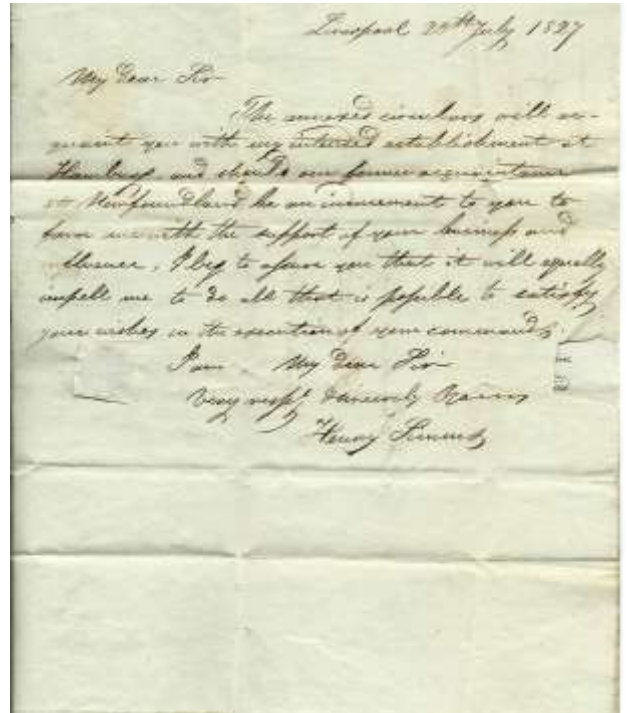 Liverpool 28th July 1827
My Dear Sir
The annexed circulars will ac-
quaint you with my intended establishment at
Hamburg, and should our former acquaintance
at Newfoundland be an inducement to you to
favor me with the support of your business and
influence, I beg to assure you that it will equally
impell me to do all that is possible to satisfy
your wishes in the execution of your commands.
I am My Dear Sir
Very respy Sincerely Yours
Henry